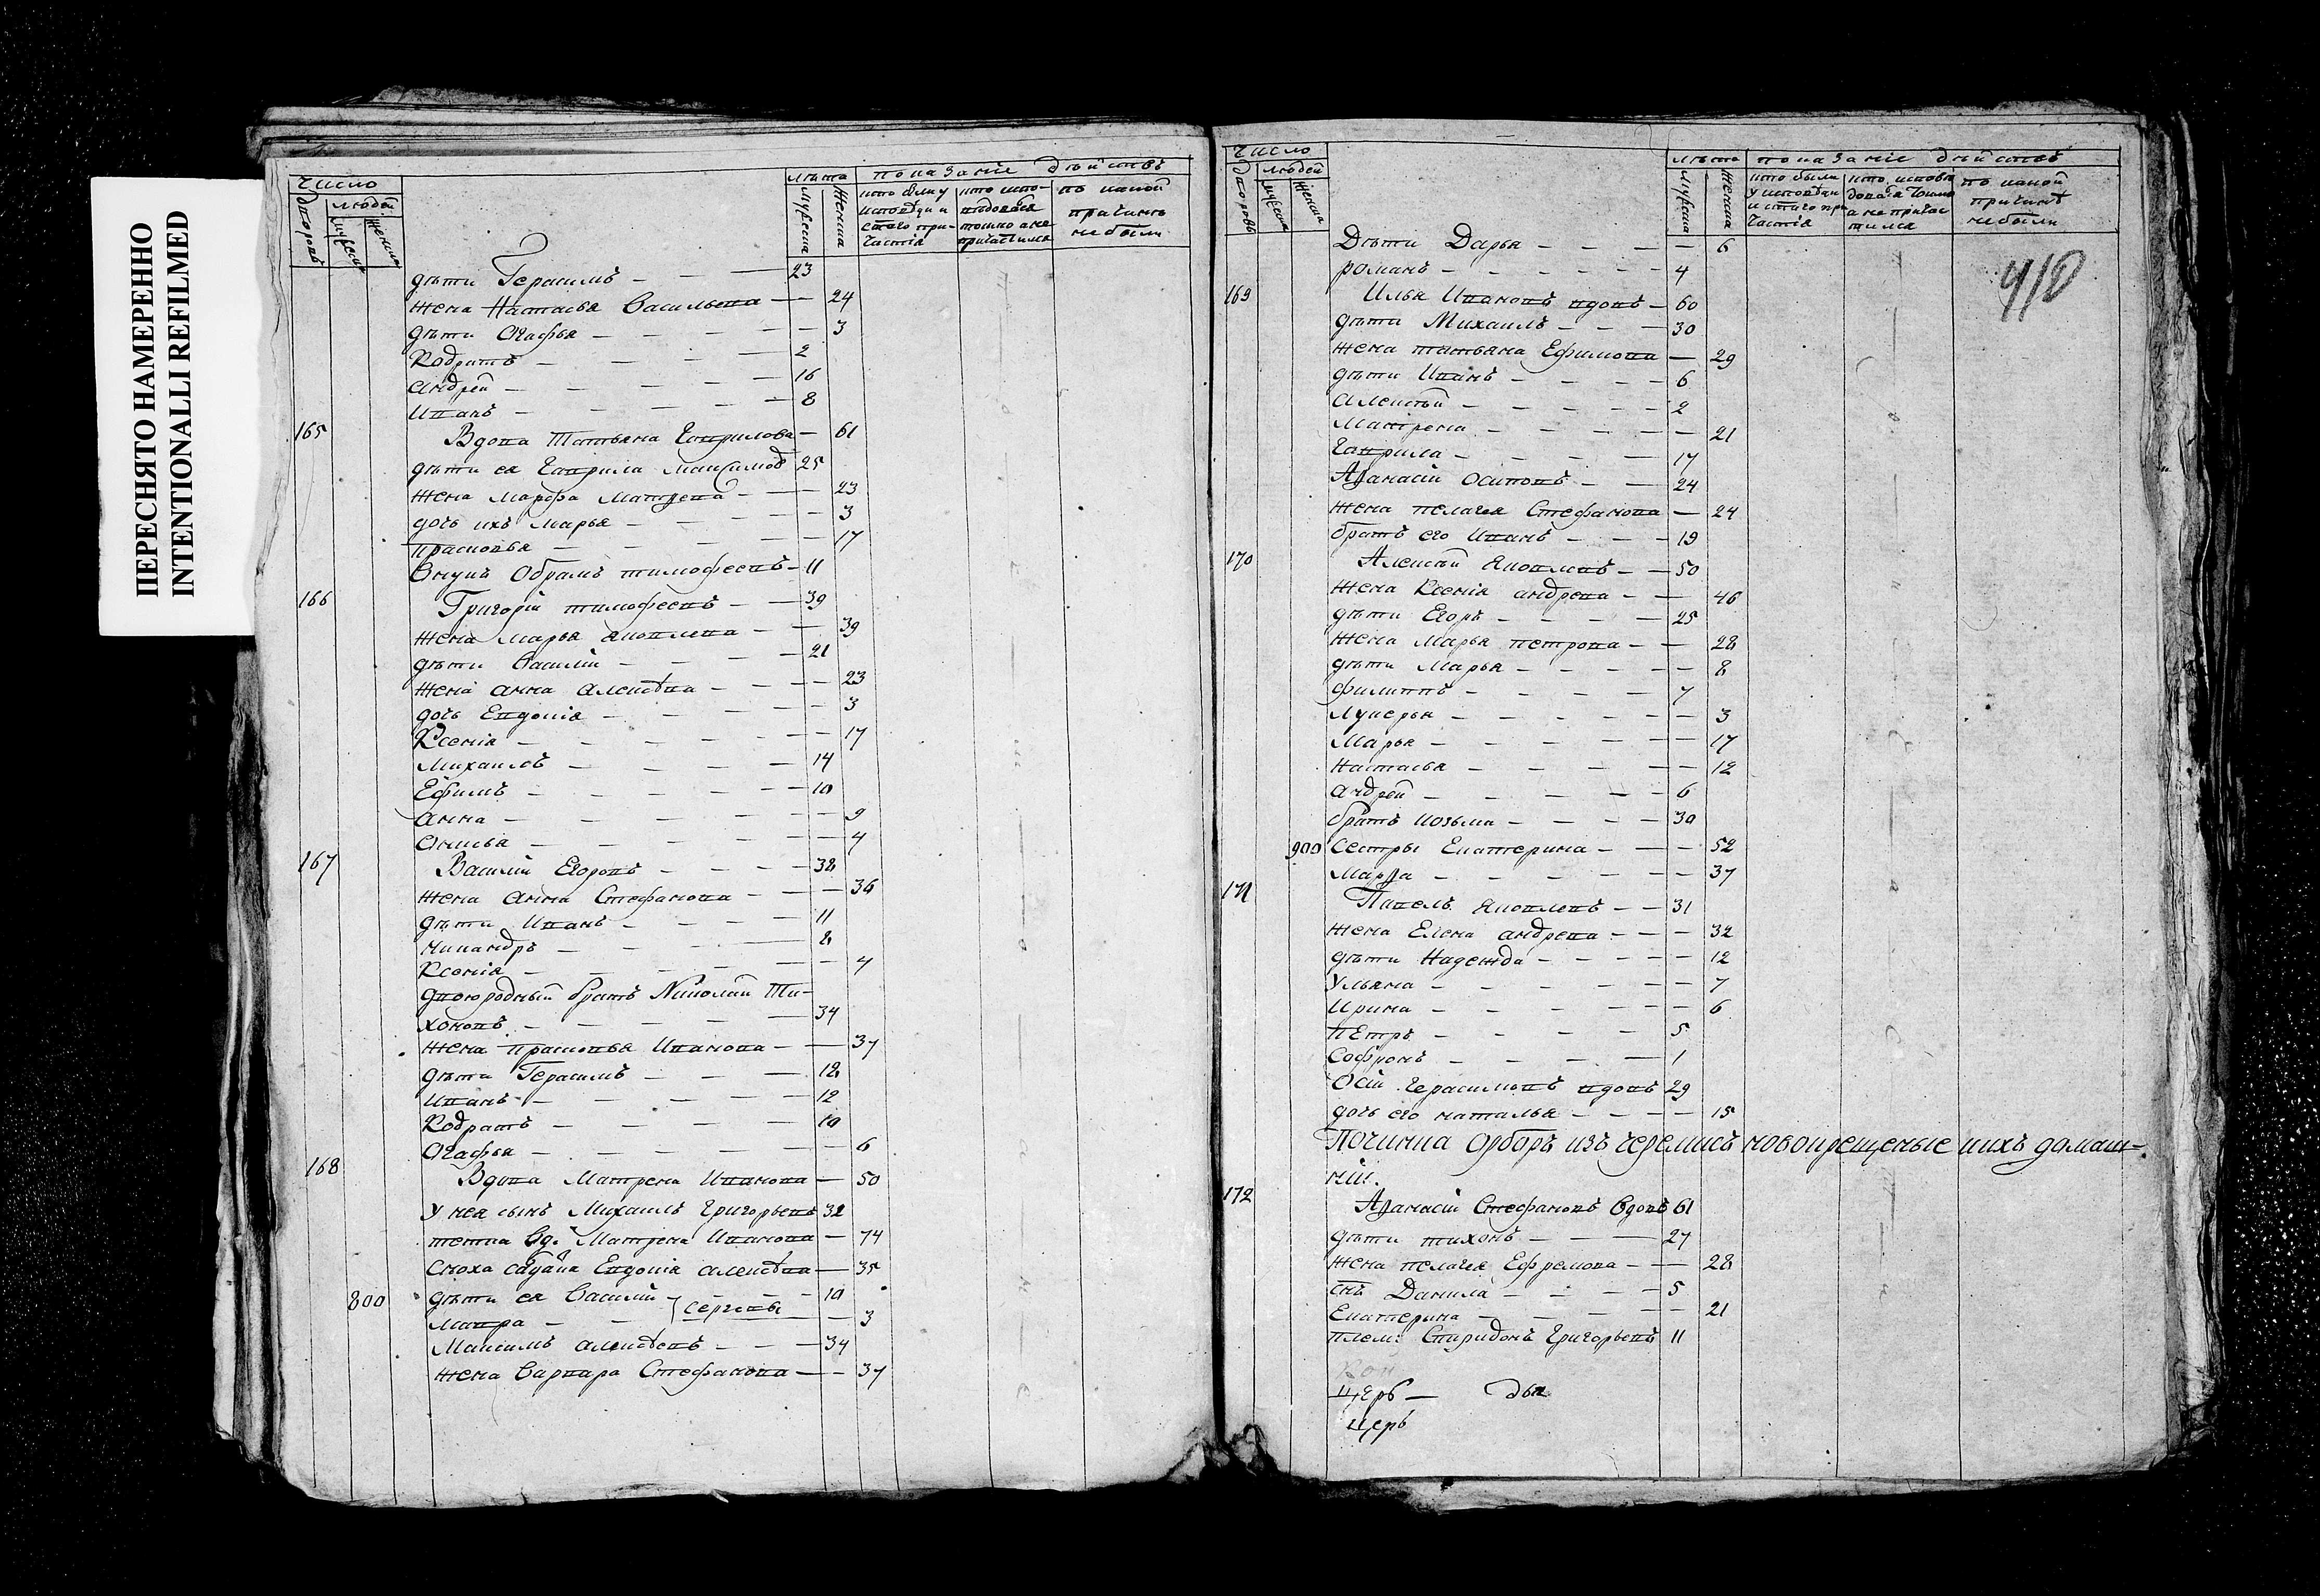 ПЕРЕСНЯТО НАМЕРЕННО
INTENTIONALLI REFILMED
Число
дворовъ
людей
мужеска
женска
лѣта
мужеска
женска
показаніе дѣйствъ
кто былъ у исповѣди и стаго причастія
кто исповѣдовался токмо а не причастился
по какой причинѣ не были
дѣти Герасимъ — 23
жена Настасья Васильева — 24
дѣти Огафья — 3
Кодратъ — 2
андрей — 16
иванъ — 8
165 Вдова Татьяна Гаврилова — 61
дѣти ея Гаврила Максимовъ 25
жена Марфа Матвева — 23
дочь ихъ Марья — 3
прасковья — 17
Внукъ Обрамъ тимофеевъ — 11
166 Григорій тимофеевъ — 39
жена Марья яковлева — 39
дѣти Василій — 21
жена анна алексѣвна — 23
дочь Евдокія — 3
Ксенія — 17
Михаилъ — 14
Ефимъ — 10
анна — 9
Онисья — 4
167 Василій Егоровъ — 38
жена анна Стефанова — 36
дѣти Иванъ — 11
никандръ — 8
Ксенія — 4
двоюродный братъ Николай Ти-
хоновъ — 34
жена прасковья Иванова — 37
дѣти Герасимъ — 18
иванъ — 12
Кодратъ — 10
Огафья — 6
168 Вдова Матрена Иванова — 50
у нея сынъ Михаилъ григорьевъ 32
тетка вд. Матрена Иванова — 74
Сноха вдова Евдокія алексѣвна — 35
800 дѣти ея Василій — 10
Сергѣевы
Мавра — 3
Максимъ алексѣевъ — 34
жена Варвара Стефанова — 37
Число
дворовъ
людей
мужеска
женска
лѣта
мужеска
женска
показаніе дѣйствъ
кто были у исповѣди и стаго причастія
кто исповѣдовался токмо а не причастился
по какой причинѣ не были
410
Дѣти Дарья — 6
романъ — 4
169 Илья Ивановъ вдовъ — 60
дѣти Михаилъ — 30
жена татьяна Ефимова — 29
дѣти Иванъ — 6
алексѣй — 2
Матрена — 21
гаврила — 17
Афанасій осиповъ — 24
жена пелагея Стефанова — 24
братъ его Иванъ — 19
170 Алексѣй яковлевъ — 50
жена Ксенія андрева — 46
дѣти Егоръ — 25
жена Марья петрова — 28
дѣти Марья — 8
филиппъ — 7
лукерья — 3
Марья — 17
наталья — 12
андрей — 6
братъ козьма — 30
900 Сестры Екатерина — 52
Марфа — 37
171 Павелъ яковлевъ — 31
жена Елена андрева — 32
дѣти Надежда — 12
ульяна — 7
ирина — 6
пЕтръ — 5
Софронъ — 1
Осій герасимовъ вдовъ 29
дочь его наталья — 15
Починка Орборъ изъ черемисъ новокрещеные и ихъ домаш-
ніи.
172 Афанасій Стефановъ вдовъ 61
дѣти тихонъ — 27
жена пелагея Ефремова — 28
снъ Данила — 5
Екатерина — 21
плем: Спиридонъ григорьевъ 11
церб — дья
церь